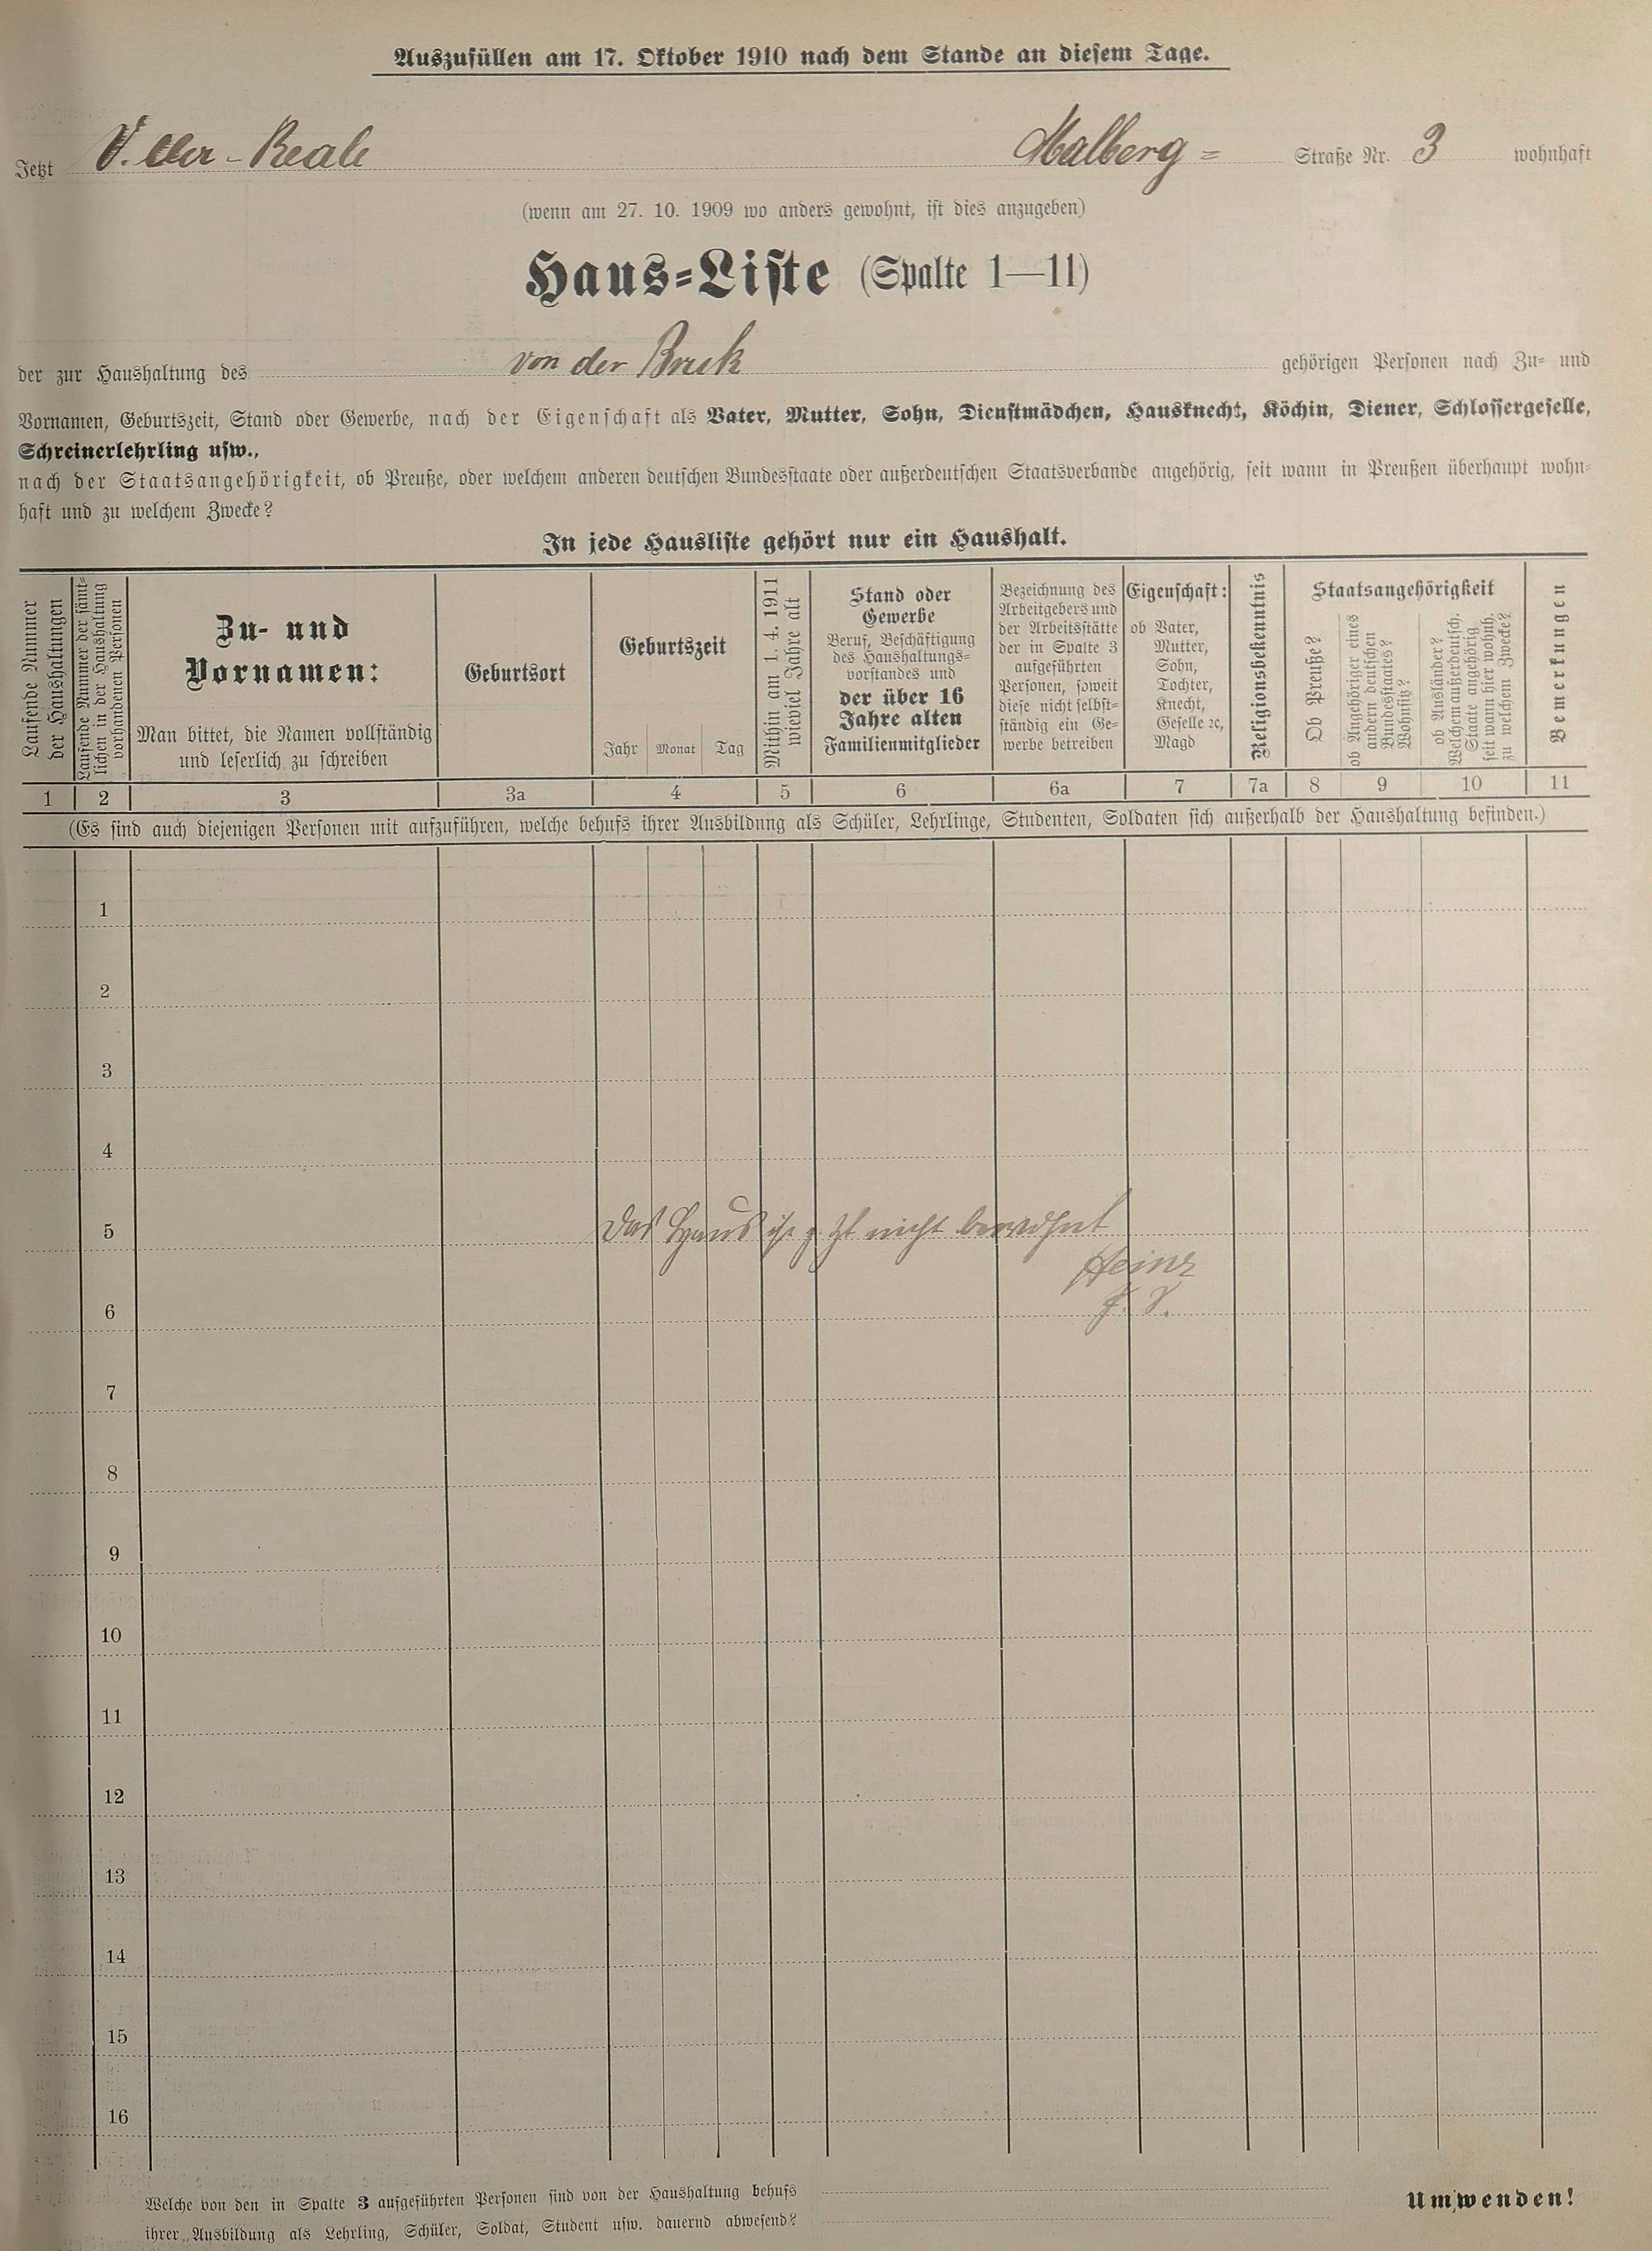 Auszufüllen am 17. Oktober 1910 nach dem Stande an diesem Tage.
Jetzt Malberg= Straße Nr. 3 wohnhaft
(wenn am 27. 10. 1909 wo anders gewohnt, ist dies anzugeben)
Haus=Liste (Spalte 1—11)
der zur Haushaltung des von der Bruck gehörigen Personen nach Zu= und
Vornamen, Geburtszeit, Stand oder Gewerbe, nach der Eigenschaft als Vater, Mutter, Sohn, Dienstmädchen, Hausknecht, Köchin, Diener, Schlossergeselle,
Schreinerlehrling usw.,
nach der Staatsangehörigkeit, ob Preuße, oder welchem anderen deutschen Bundesstaate oder außerdeutschen Staatsverbande angehörig, seit wann in Preußen überhaupt wohn=
haft und zu welchem Zwecke?
In jede Hausliste gehört nur ein Haushalt.
Laufende Nummer
der Haushaltungen
Laufende Nummer der sämt=
lichen in der Haushaltung
vorhandenen Personen
Zu- und
Vornamen:
Man bittet, die Namen vollständig
und leserlich zu schreiben
Geburtsort
Geburtszeit
Jahr Monat Tag
Mithin am 1. 4. 1911
wieviel Jahre alt
Stand oder
Gewerbe
Beruf, Beschäftigung
des Haushaltungs=
vorstandes und
der über 16
Jahre alten
Familienmitglieder
Bezeichnung des
Arbeitgebers und
der Arbeitsstätte
der in Spalte 3
aufgeführten
Personen, soweit
diese nicht selbst=
ständig ein Ge=
werbe betreiben
Eigenschaft:
ob Vater,
Mutter,
Sohn,
Tochter,
Knecht,
Geselle ꝛc,
Magd
Religionsbekenntnis
Staatsangehörigkeit
Ob Preuße?
ob Angehöriger eines
andern deutschen
Bundesstaates?
Wohnsitz?
ob Ausländer?
Welchem außerdeutsch.
Staate angehörig
seit wann hier wohnh.
zu welchem Zwecke?
Bemerkungen
1 2 3 3a 4 5 6 6a 7 7a 8 9 10 11
(Es sind auch diejenigen Personen mit aufzuführen, welche behufs ihrer Ausbildung als Schüler, Lehrlinge, Studenten, Soldaten sich außerhalb der Haushaltung befinden.)
1
2
3
4
5 Das Haus ist z Zt nicht bewohnt
Heinz
6
7
8
9
10
11
12
13
14
15
16
Welche von den in Spalte 3 aufgeführten Personen sind von der Haushaltung behufs
ihrer Ausbildung als Lehrling, Schüler, Soldat, Student usw. dauernd abwesend?
Umwenden!